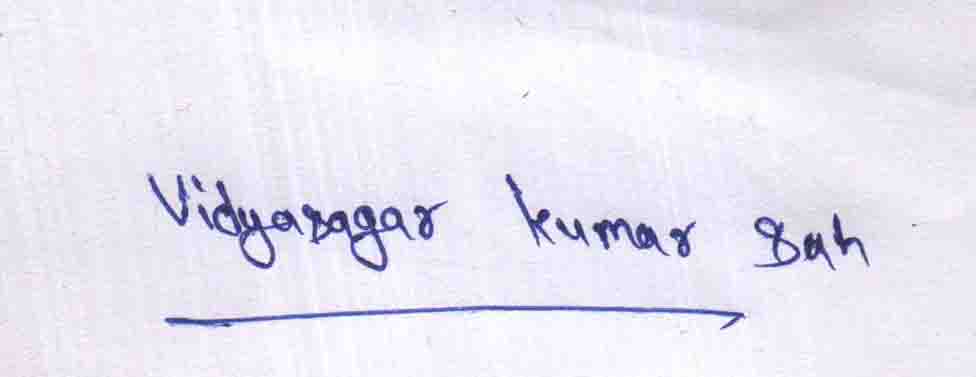 Vidyasagar kumar Sah